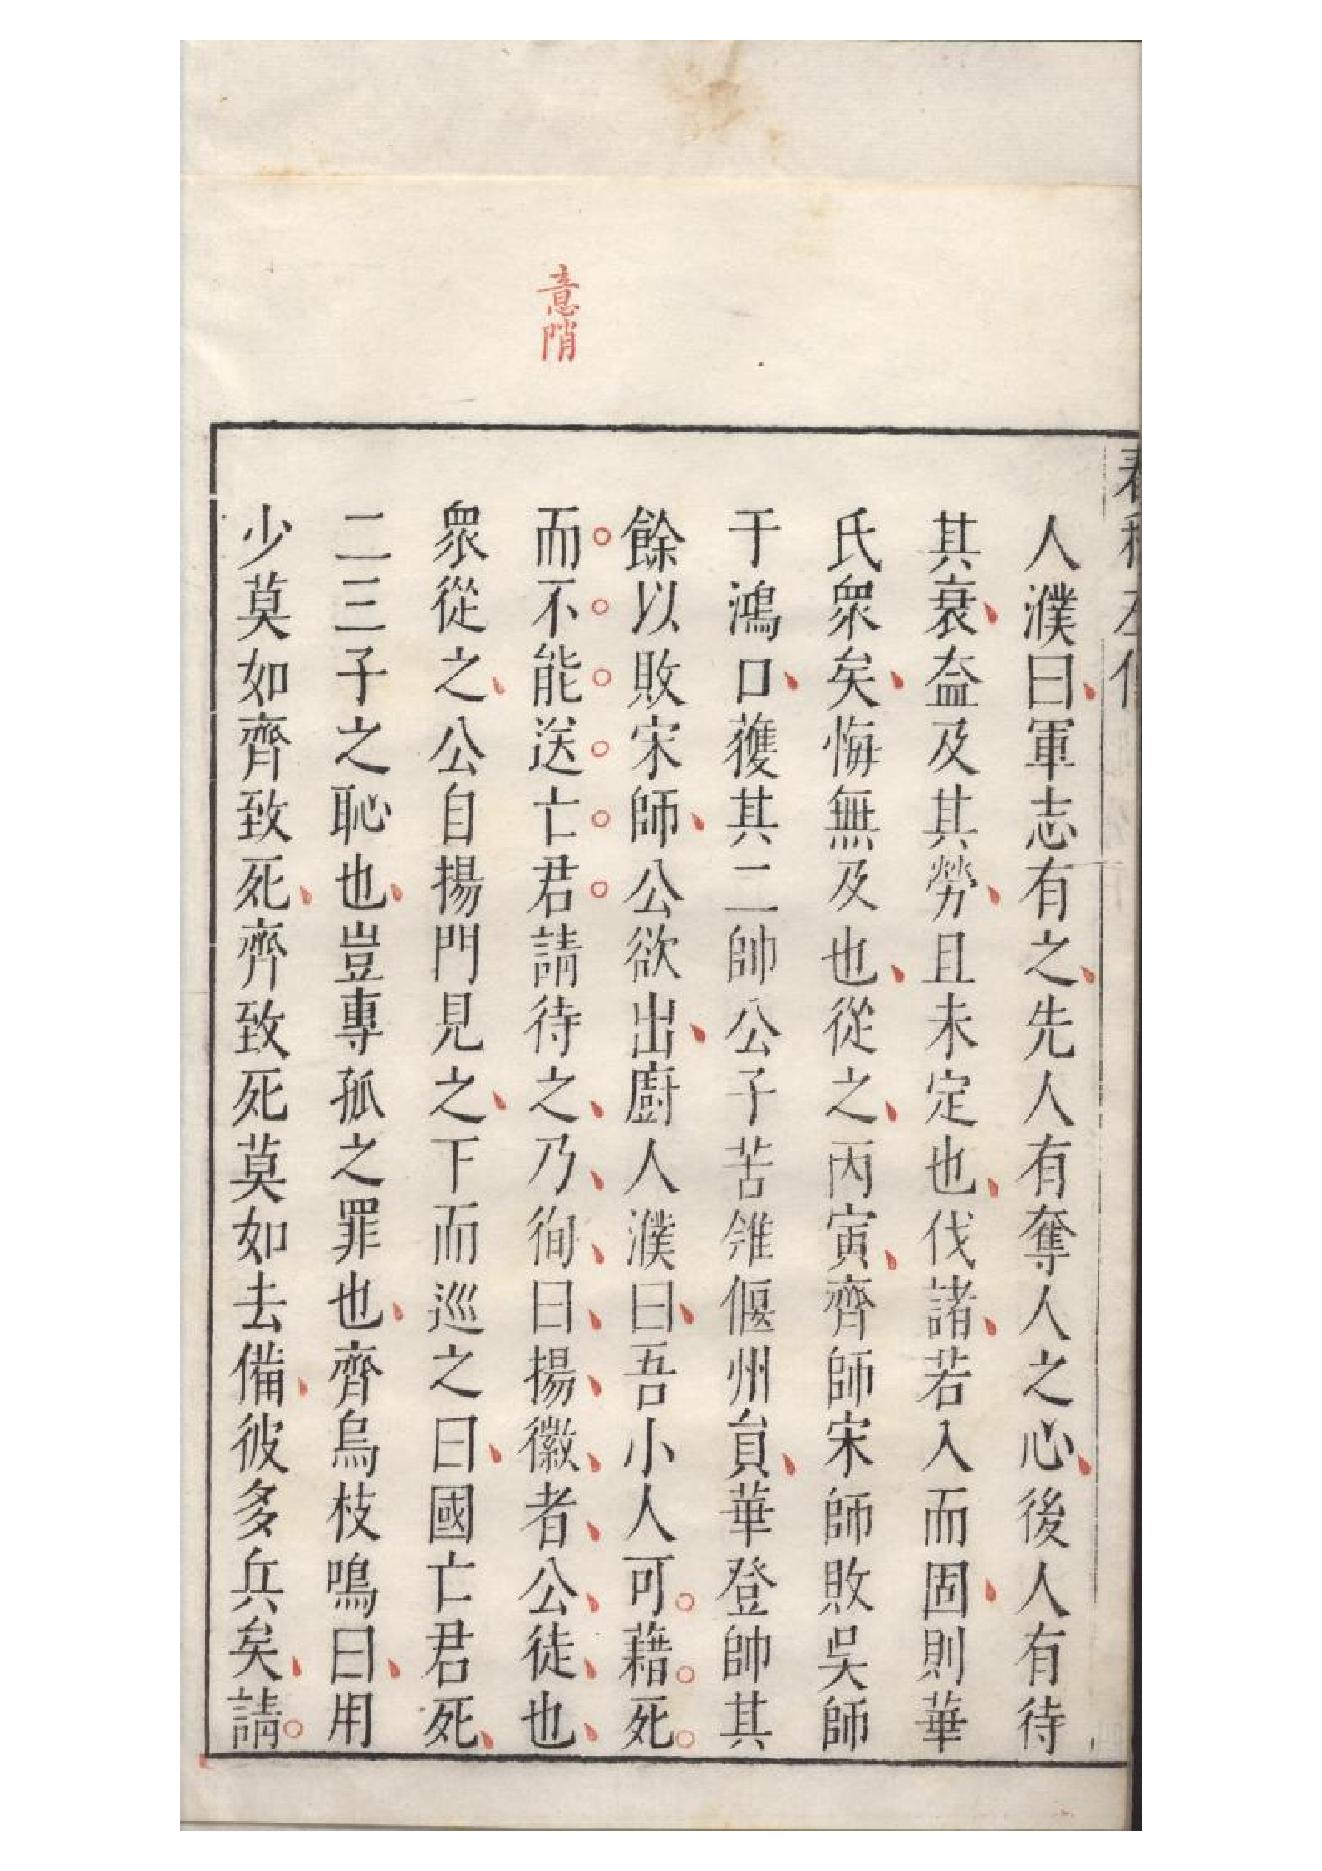 意階
春秋左傳
人濮曰軍志有之先人有奪人之心後人有待
其衰盍及其勞且未定也伐諸若入而固則華
氏衆矣悔無及也從之丙寅齊師宋師敗吳師
于鴻口獲其二帥公子苦雂偃州員華登帥其
餘以敗宋師公欲出廚人濮曰吾小人可藉死
而不能送亡君請待之乃徇曰揚徽者公徒也
衆從之公自揚門見之下而巡之曰國亡君死
二三子之恥也豈專孤之罪也齊烏枝鳴曰用
少莫如齊致死齊致死莫如去備彼多兵矣請